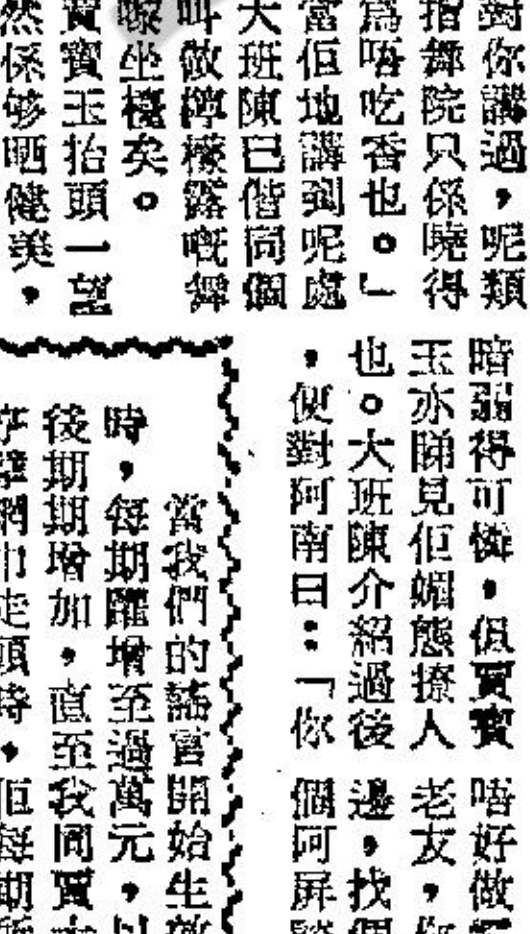 對你講過,呢類
指舞院只係曉得
為唔吃香也。」
當佢地講到呢處
大班陳已偕同個
叫做檸檬露嘅舞
嚟坐檯矣。
賈寶玉抬頭一望
然係够晒健美,
暗弱得可憐,但賈寶
玉亦睇見佢媚態撩人
也。大班陳介紹過後
,便對阿南曰:「你
唔好做
老友,你
邊,找個
個阿屏
當我們的 開始生效
時,每期躍增至過萬元,以
後期期增加,直至我同賈
時,佢每期所